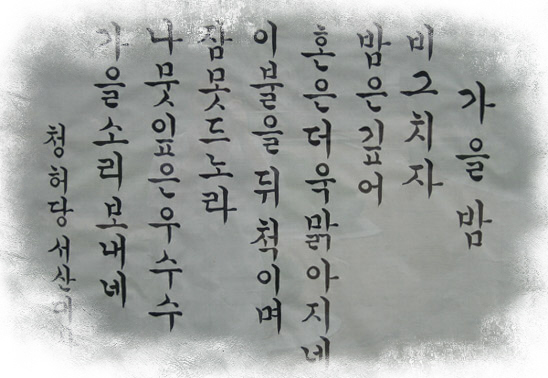 가을 밤
비 그치자
밤은 깊어
혼은 더욱 맑아지네
이불을 뒤척이며
잠 못 드노라
나뭇잎은 우수수
가을 소리 보내네
청허당 서산대